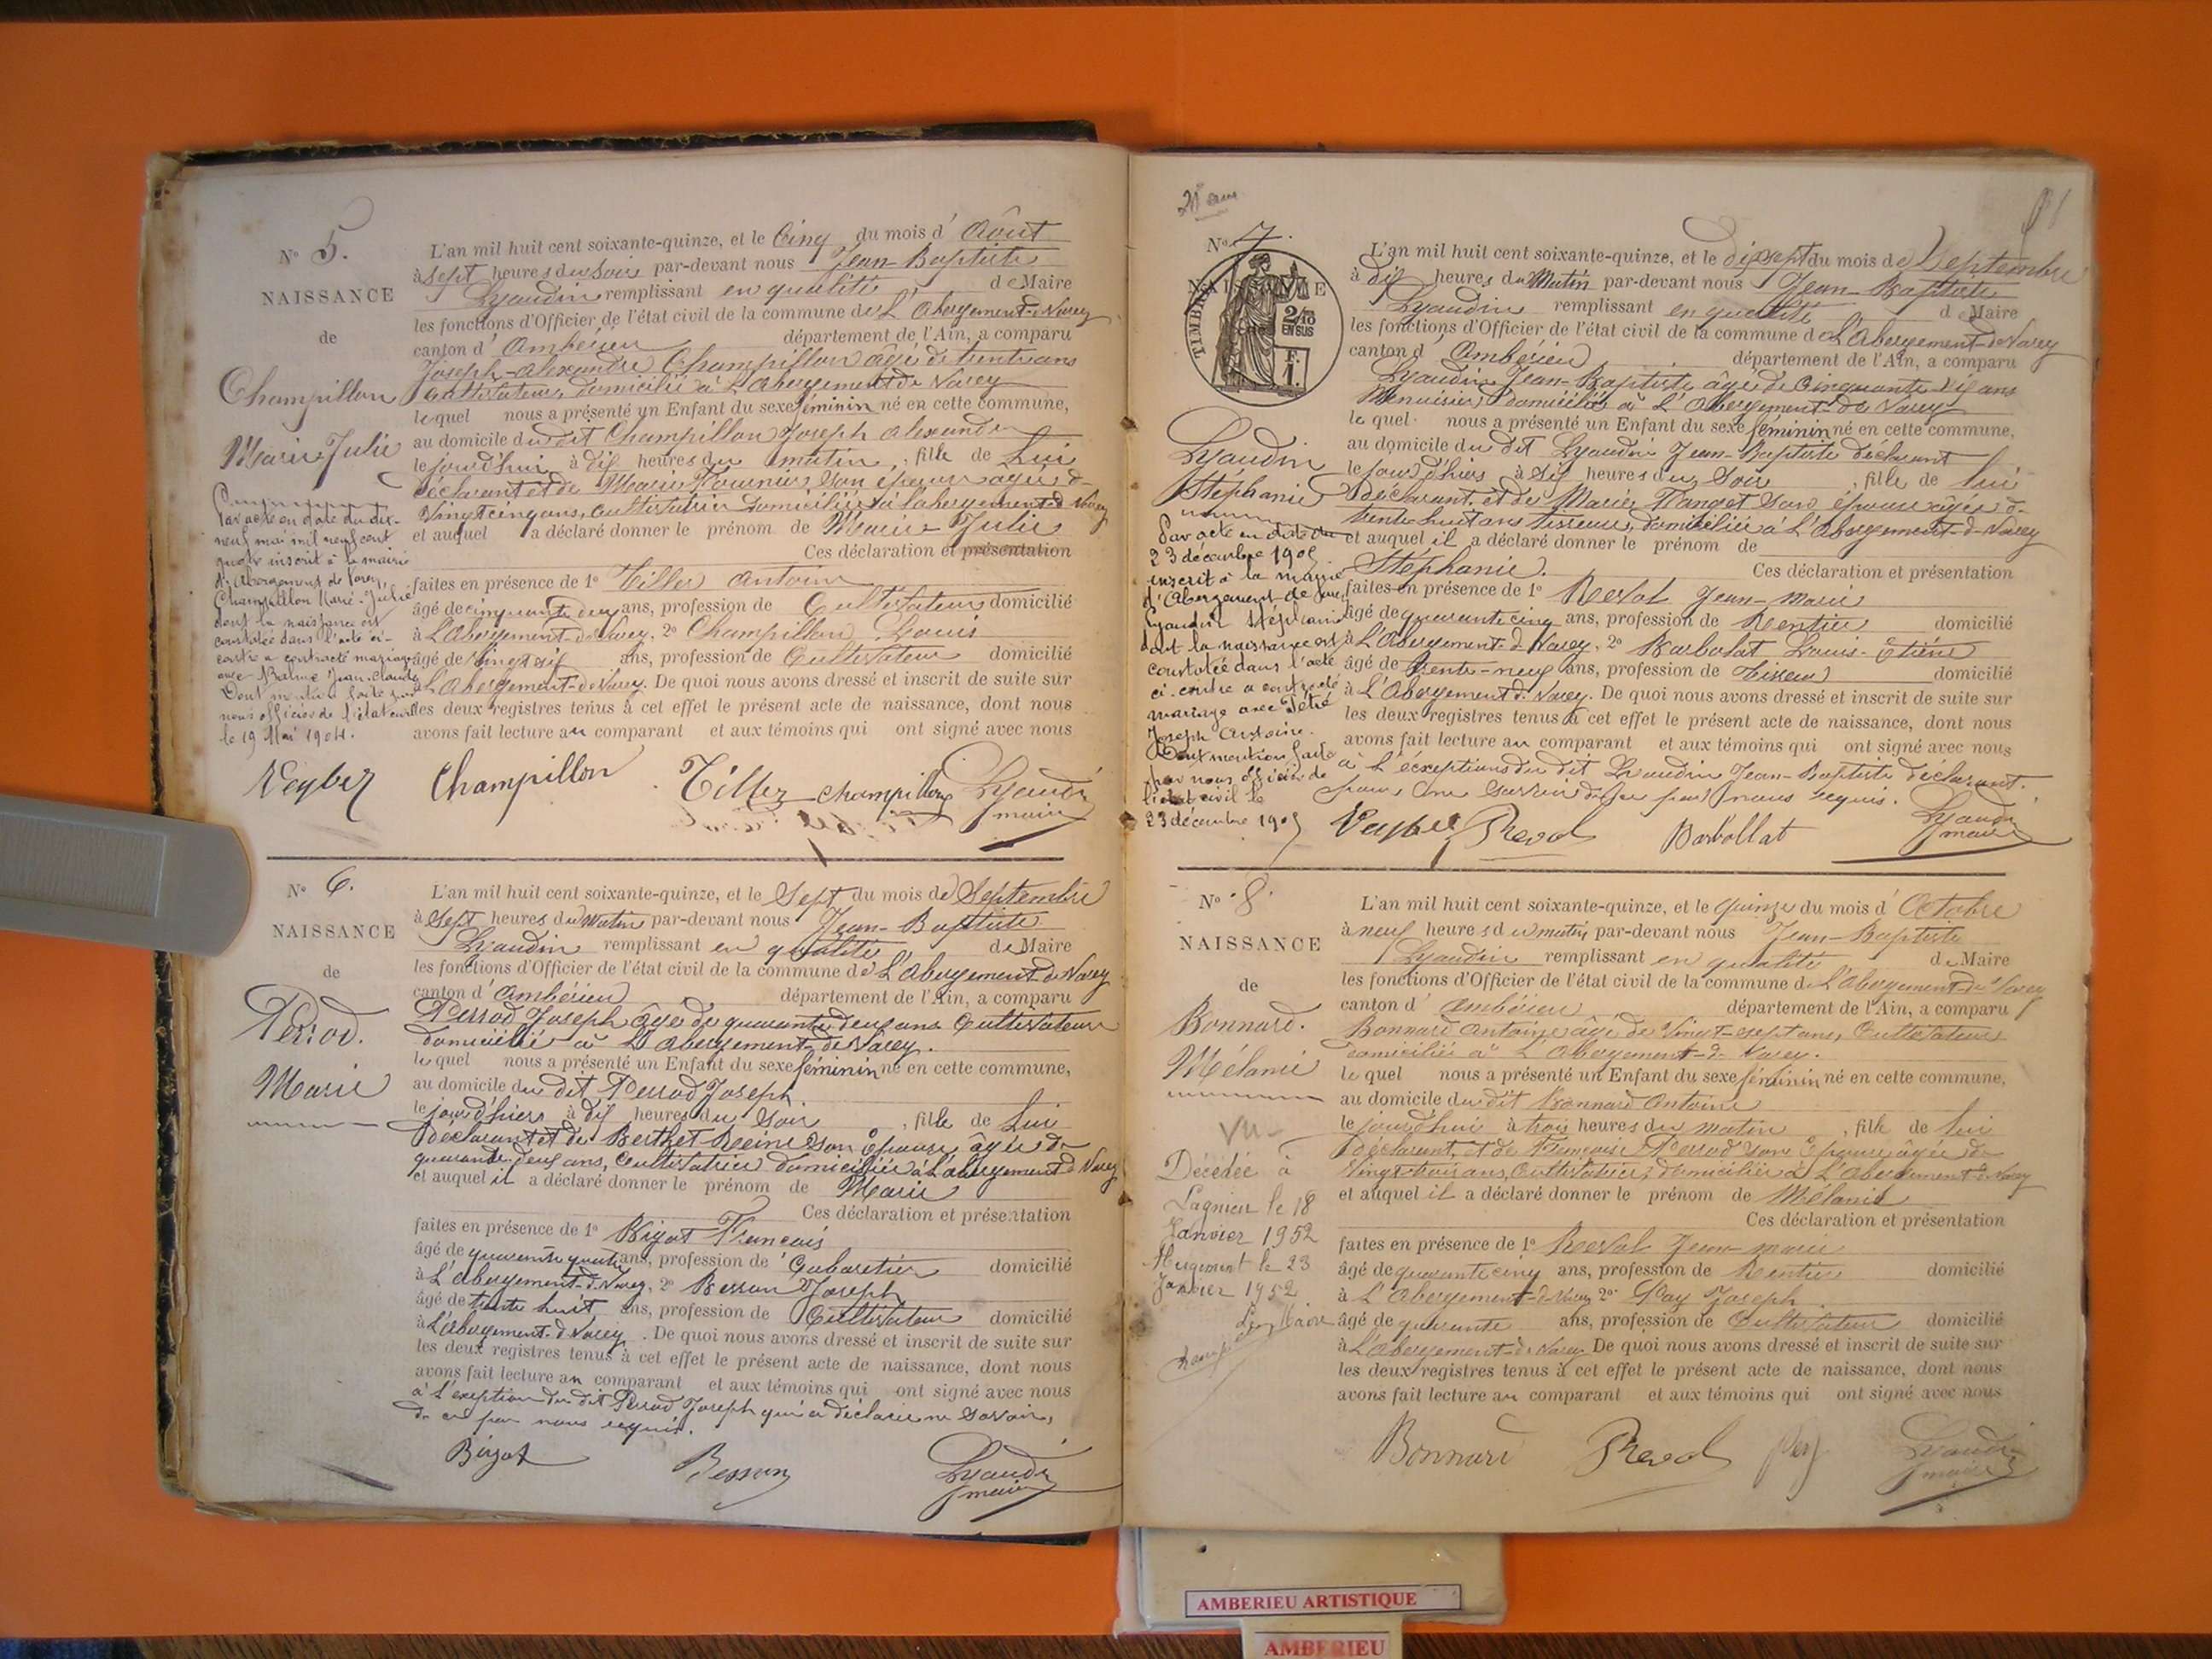 N° 5.
NAISSANCE
de
Champillon
Marie Julie
Par acte en date du dix-
neuf mai mil neuf cent
quatre inscrit à la mairie
d'Abergement de Varey,
Champillon Marie-Julie
dont la naissance est
constatée dans l'acte ci-
contre a contracté mariage
avec Balme Jean-Claude
Dont mention faite par
nous officier de l'état civil
le 19 Mai 1904.
L'an mil huit cent soixante-quinze, et le Cinq du mois d'Août
à Sept heures du Soir par-devant nous Jean-Baptiste
Lyaudin remplissant en qualité de Maire
les fonctions d'Officier de l'état civil de la commune de L'Abergement-de-Varey
canton d'Ambérieu département de l'Ain, a comparu
Joseph-Alexandre Champillon âgé de trente ans
Cultivateur, domicilié à L'Abergement de Varey
lequel nous a présenté un Enfant du sexe féminin né en cette commune,
au domicile du dit Champillon Joseph Alexandre
le jourd'hui à dix heures du matin, fille de Lui
déclarant et de Marie Fournier son épouse agée de
Vingt cinq ans, cultivatrice domiciliée à l'abergement de Varey
et auquel a déclaré donner le prénom de Marie-Julie
Ces déclaration et présentation
faites en présence de 1° Tiller Antoine
âgé de cinquante deux ans, profession de Cultivateur domicilié
à L'Abergement-de-Varey, 2° Champillon Louis
âgé de Vingt six ans, profession de Cultivateur domicilié
à L'Abergement-de-Varey. De quoi nous avons dressé et inscrit de suite sur
les deux registres tenus à cet effet le présent acte de naissance, dont nous
avons fait lecture au comparant et aux témoins qui ont signé avec nous
Champillon Tiller Champillon Lyaudin
maire
N° 6.
NAISSANCE
de
Perrod.
Marie
L'an mil huit cent soixante-quinze, et le Sept du mois de Septembre
à Sept heures du Matin par-devant nous Jean-Baptiste
Lyaudin remplissant en qualité de Maire
les fonctions d'Officier de l'état civil de la commune de L'Abergement de Varey
canton d'Ambérieu département de l'Ain, a comparu
Perrod Joseph âgé de quarante deux ans Cultivateur
domicilié à L'Abergement-de-Varey.
lequel nous a présenté un Enfant du sexe féminin né en cette commune,
au domicile du dit Perrod Joseph.
le jour d'hiers à dix heures du Soir, fille de Lui
déclarant et de Berthet Reine son épouse, âgée de
quarante deux ans, Cultivatrice domiciliée à L'abergement de Varey
et auquel il a déclaré donner le prénom de Marie
Ces déclaration et présentation
faites en présence de 1° Bigot Francois
âgé de quarante quatre ans, profession de Cabaretier domicilié
à L'abergement-de-Varey, 2° Besson Joseph
âgé de trente huit ans, profession de Cultivateur domicilié
à L'abergement-de-Varey. De quoi nous avons dressé et inscrit de suite sur
les deux registres tenus à cet effet le présent acte de naissance, dont nous
avons fait lecture au comparant et aux témoins qui ont signé avec nous
à l'exeption du dit Perrod Joseph qui a déclaré ne savoir,
de ce par nous requis.
Bigot Besson Lyaudin
maire
N° 7.
TIMBRE
2/10
EN SUS
Lyaudin
Stéphanie
Par acte en date du
23 décembre 1905
inscrit à la mairie
d'Abergement-de-Varey
Lyaudin Stéphanie
dont la naissance est
constatée dans l'acte
ci-contre a contracté
mariage avec
Joseph Antoine.
Dont mention faite
par nous officier de
l'état civil le
23 décembre 1905
L'an mil huit cent soixante-quinze, et le dix sept du mois de Septembre
à dix heures du Matin par-devant nous Jean-Baptiste
Lyaudin remplissant en qualité de Maire
les fonctions d'Officier de l'état civil de la commune de L'Abergement-de-Varey
canton d'Ambérieu département de l'Ain, a comparu
Lyaudin Jean-Baptiste âgé de Cinquante dix ans
Menuisier, domicilié à L'Abergement-de-Varey
lequel nous a présenté un Enfant du sexe féminin né en cette commune,
au domicile du dit Lyaudin Jean-Baptiste déclarant
le jour d'hiers à Six heures du Soir, fille de Lui
déclarant et de Marie Tanget son épouse âgée de
trente huit ans tisseuse, domiciliée à L'Abergement-de-Varey
et auquel il a déclaré donner le prénom de
Stéphanie.
Ces déclaration et présentation
faites en présence de 1° Revol Jean-Marie
âgé de quarante cinq ans, profession de Rentier domicilié
à L'Abergement-de-Varey, 2° Barbolat Louis-Etiéne
âgé de Trente-neuf ans, profession de Tisseur domicilié
à L'Abergement-de-Varey. De quoi nous avons dressé et inscrit de suite sur
les deux registres tenus à cet effet le présent acte de naissance, dont nous
avons fait lecture au comparant et aux témoins qui ont signé avec nous
à l'exceptions du dit Lyaudin Jean-Baptiste déclarant.
pour ne savoir de ce par nous requis.
Revol Barbollat Lyaudin
maire
N° 8.
NAISSANCE
de
Bonnard.
Mélanie
Vu
Décédée à
Lagnieu le 18
Janvier 1952
Abergement le 23
Janvier 1952
Le Maire
L'an mil huit cent soixante-quinze, et le quinze du mois d'Octobre
à neuf heures du matin par-devant nous Jean-Baptiste
Lyaudin remplissant en qualité de Maire
les fonctions d'Officier de l'état civil de la commune de L'abergement-de-Varey
canton d'Ambérieu département de l'Ain, a comparu
Bonnard Antoine âgé de Vingt-sept ans, Cultivateur
domicilié à L'Abergement-de-Varey.
lequel nous a présenté un Enfant du sexe féminin né en cette commune,
au domicile du dit Bonnard Antoine
le jourd'hui à trois heures du matin, fille de lui
déclarant, et de Françoise Perrod son Epouse âgée de
Vingt trois ans, Cultivatrice, domiciliée à L'Abergement-de-Varey
et auquel il a déclaré donner le prénom de Mélanie
Ces déclaration et présentation
faites en présence de 1° Revol Jean-marie
âgé de quarante cinq ans, profession de Rentier domicilié
à L'Abergement-de-Varey 2° Pay Joseph
âgé de quarante ans, profession de Cultivateur domicilié
à L'Abergement-de-Varey De quoi nous avons dressé et inscrit de suite sur
les deux registres tenus à cet effet le présent acte de naissance, dont nous
avons fait lecture au comparant et aux témoins qui ont signé avec nous
Bonnard Revol Lyaudin
maire
AMBERIEU ARTISTIQUE
AMBERIEU